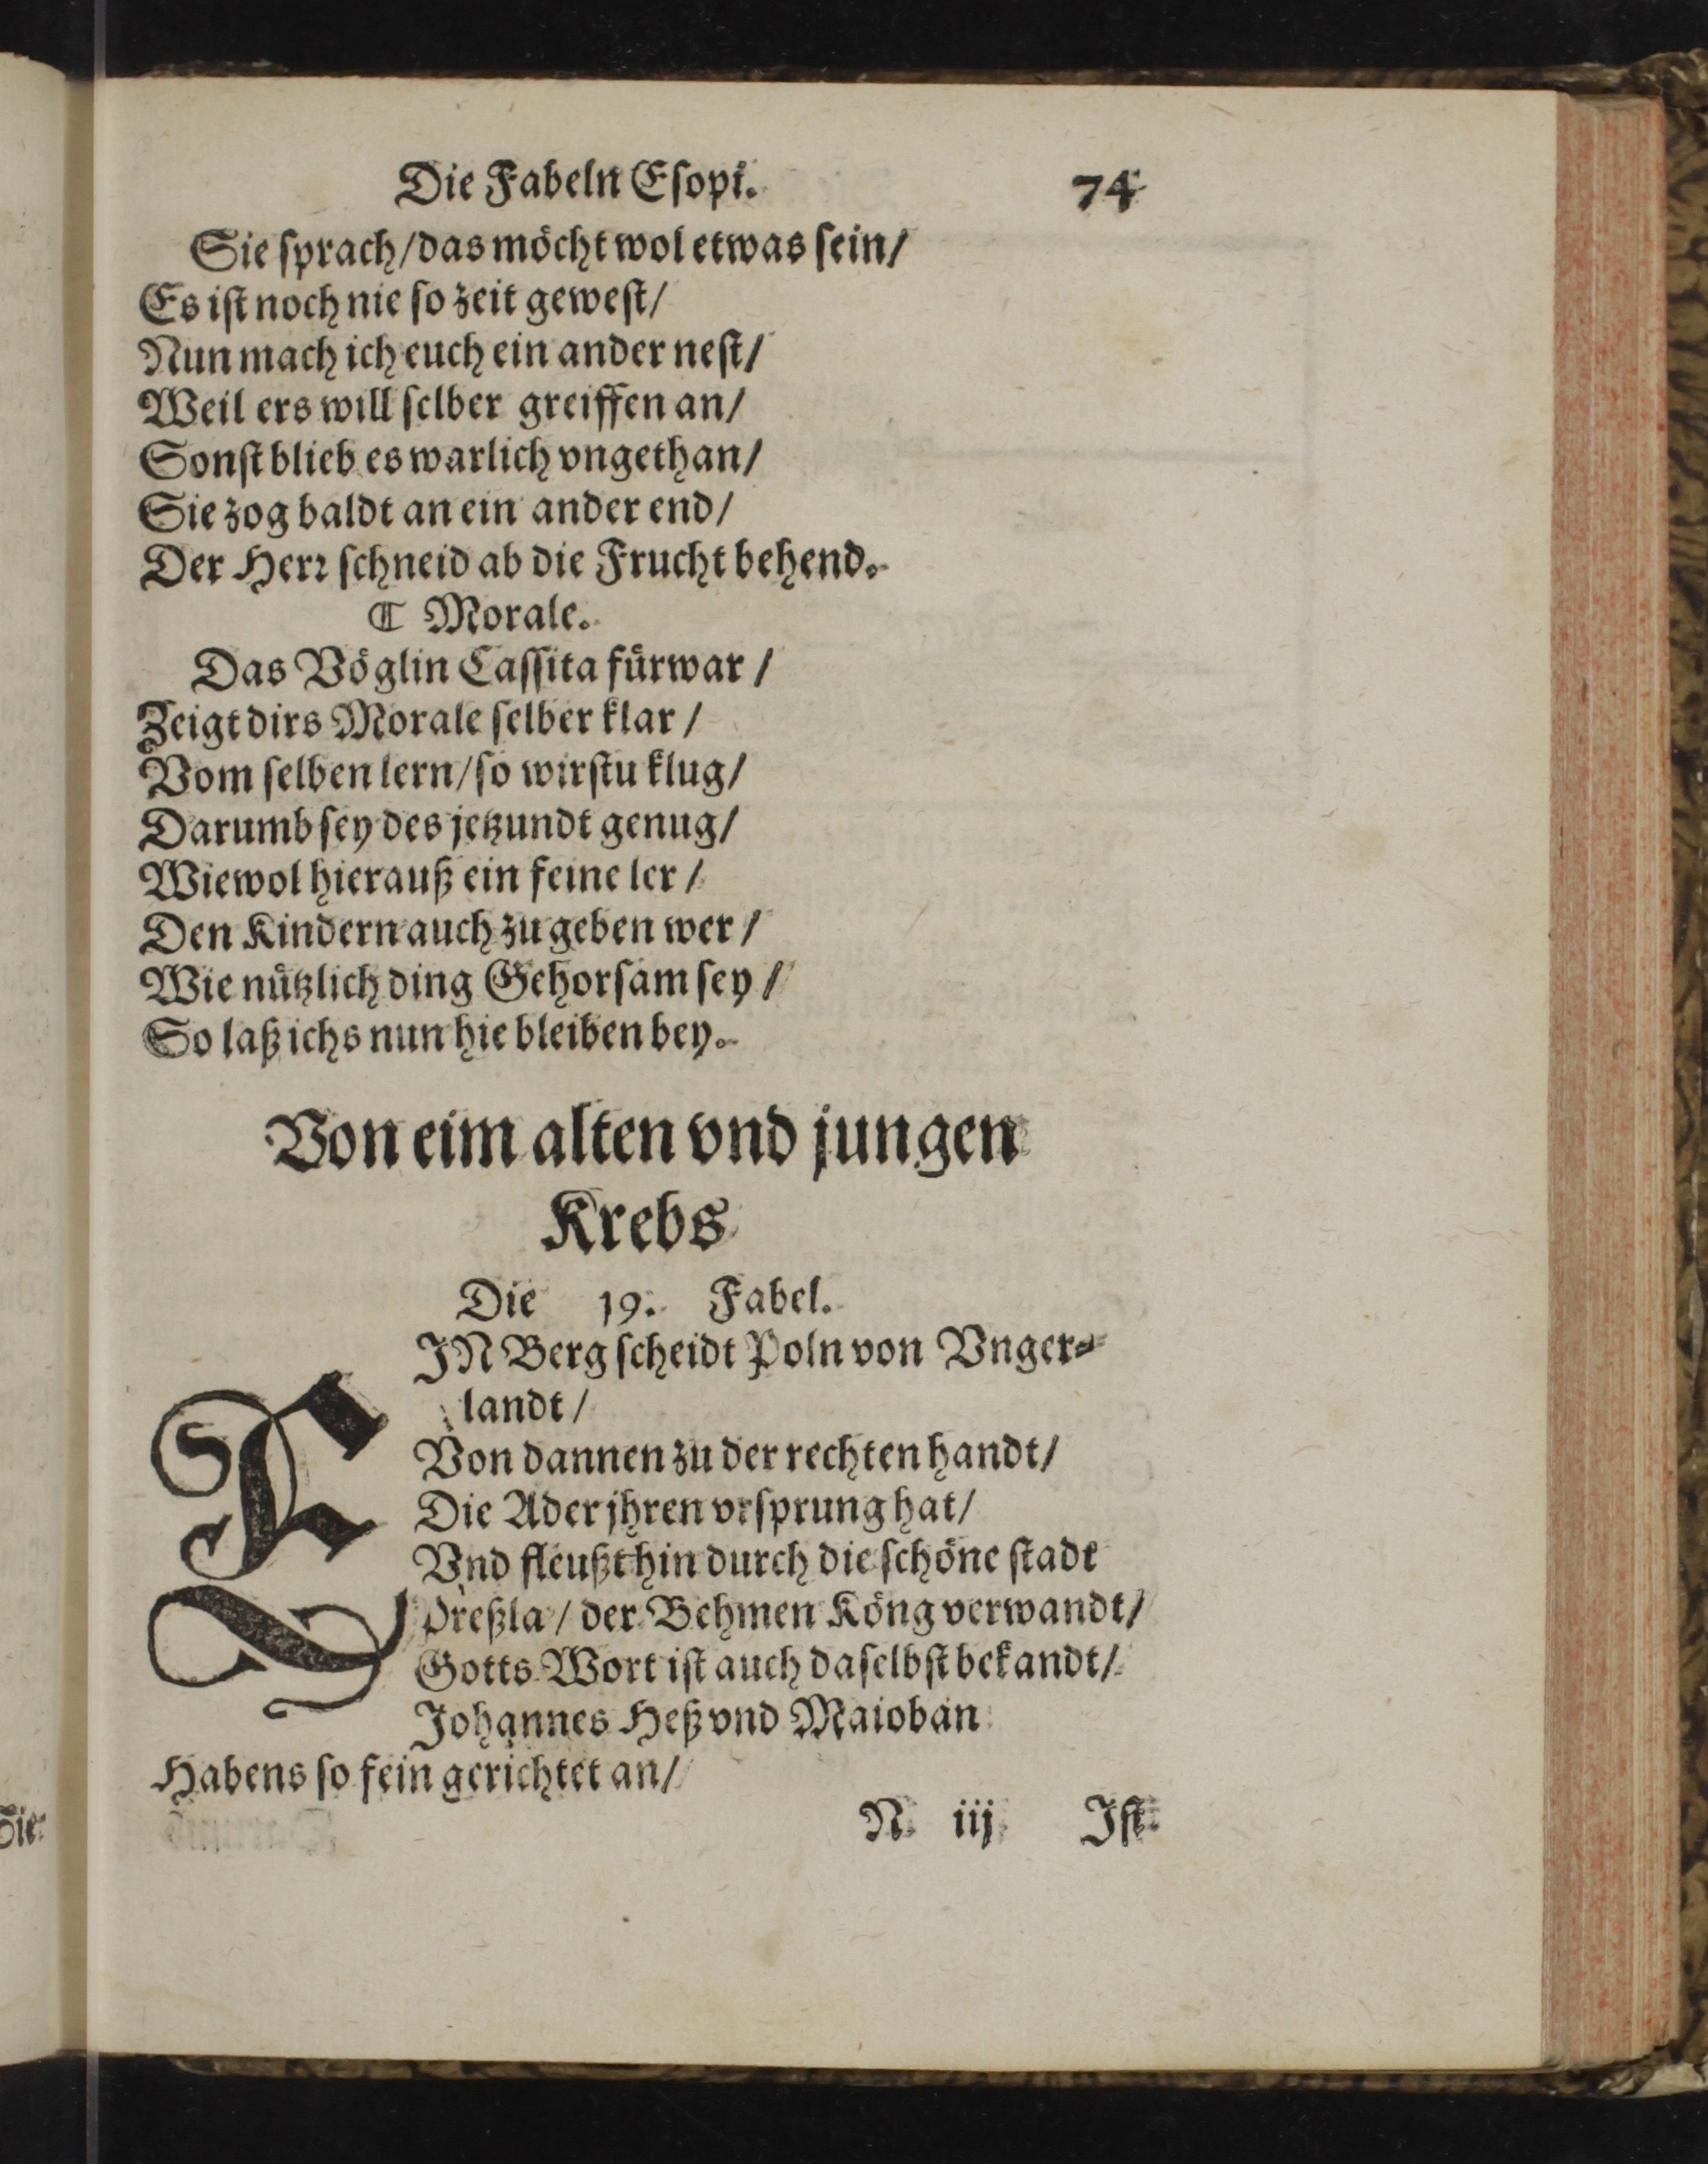 Die Fabeln Eſopi. 74
Sie ſprach/das möcht wol etwas ſein/
Es iſt noch nie ſo zeit geweſt/
Nun mach ich euch ein ander neſt/
Weil ers will ſelber greiffen an/
Sonſt blieb es warlich vngethan/
Sie zog baldt an ein ander end/
Der Herꝛ ſchneid ab die Frucht behend.
⁋ Morale.
Das Vöglin Caſſita fürwar /
Zeigt dirs Morale ſelber klar /
Vom ſelben lern/ſo wirſtu klug/
Darumb ſey des jetzundt genug/
Wiewol hierauß ein feine ler /
Den Kindern auch zu geben wer /
Wie nützlich ding Gehorſam ſey /
So laß ichs nun hie bleiben bey.
Von eim alten vnd jungen
Krebs
Die 19. Fabel.
EJN Berg ſcheidt Poln von Vnger-
landt /
Von dannen zu der rechten handt/
Die Ader jhren vrſprung hat/
Vnd fleußt hin durch die ſchöne ſtadt
Preßla / der Behmen Köng verwandt/
Gotts Wort iſt auch daſelbſt bekandt/
Johannes Heß vnd Maioban
Habens ſo fein gerichtet an/
N iij Jſt